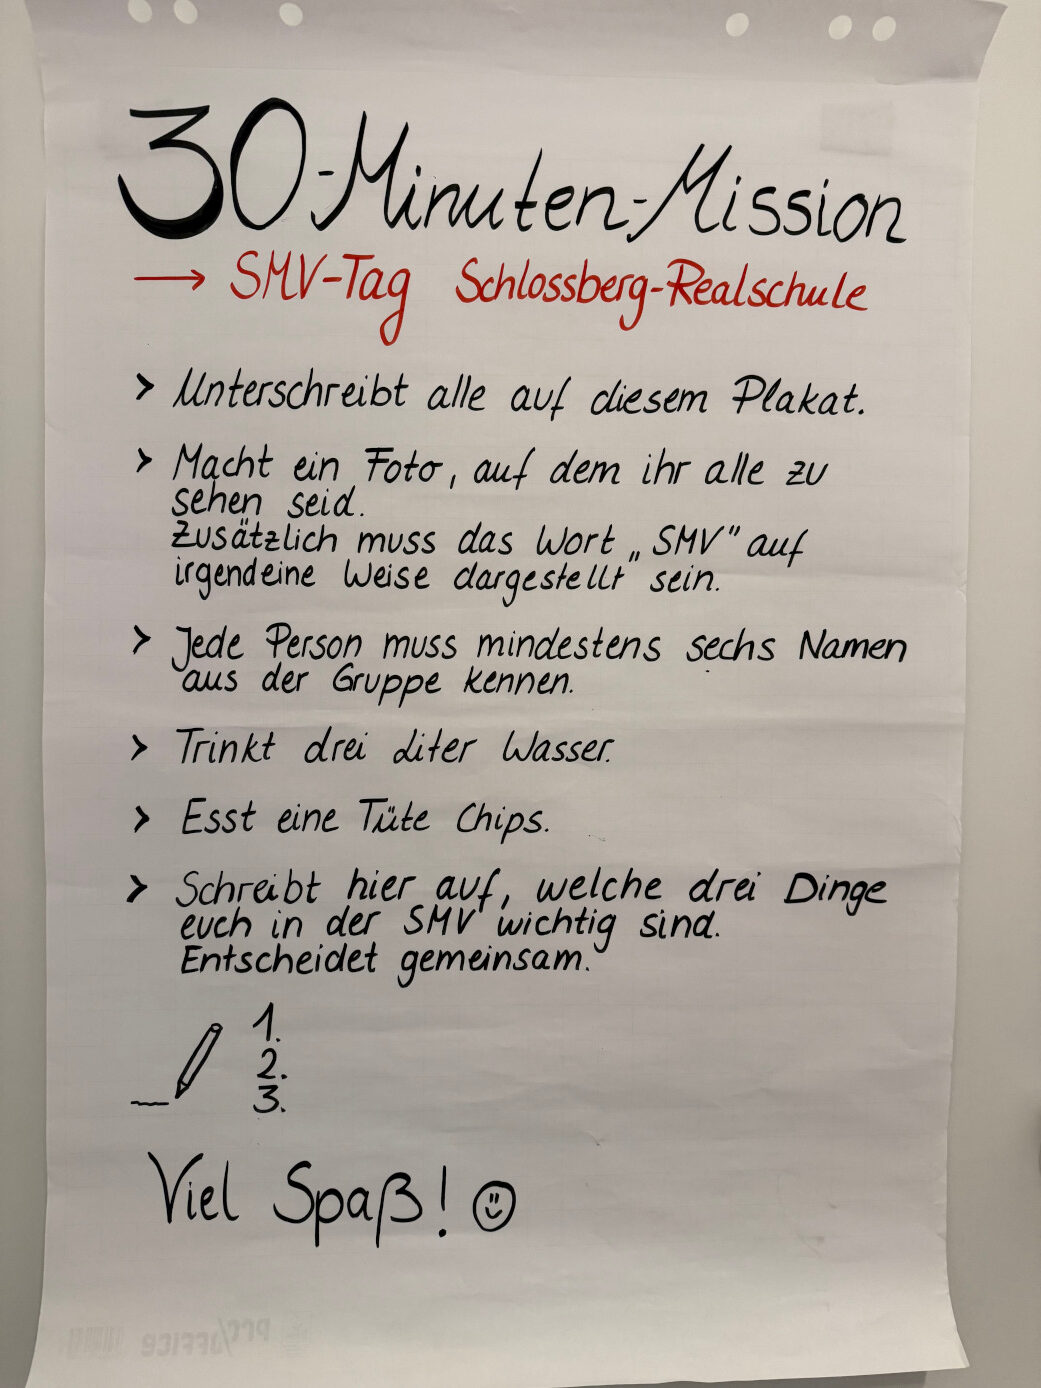 30-Minuten-Mission
→ SMV-Tag Schlossberg-Realschule
> Unterschreibt alle auf diesem Plakat.
> Macht ein Foto, auf dem ihr alle zu
sehen seid.
Zusätzlich muss das Wort „SMV" auf
irgendeine Weise dargestellt sein.
> Jede Person muss mindestens sechs Namen
aus der Gruppe kennen.
> Trinkt drei Liter Wasser.
> Esst eine Tüte Chips.
> Schreibt hier auf, welche drei Dinge
euch in der SMV wichtig sind.
Entscheidet gemeinsam.
1.
2.
3.
Viel Spaß! ☺